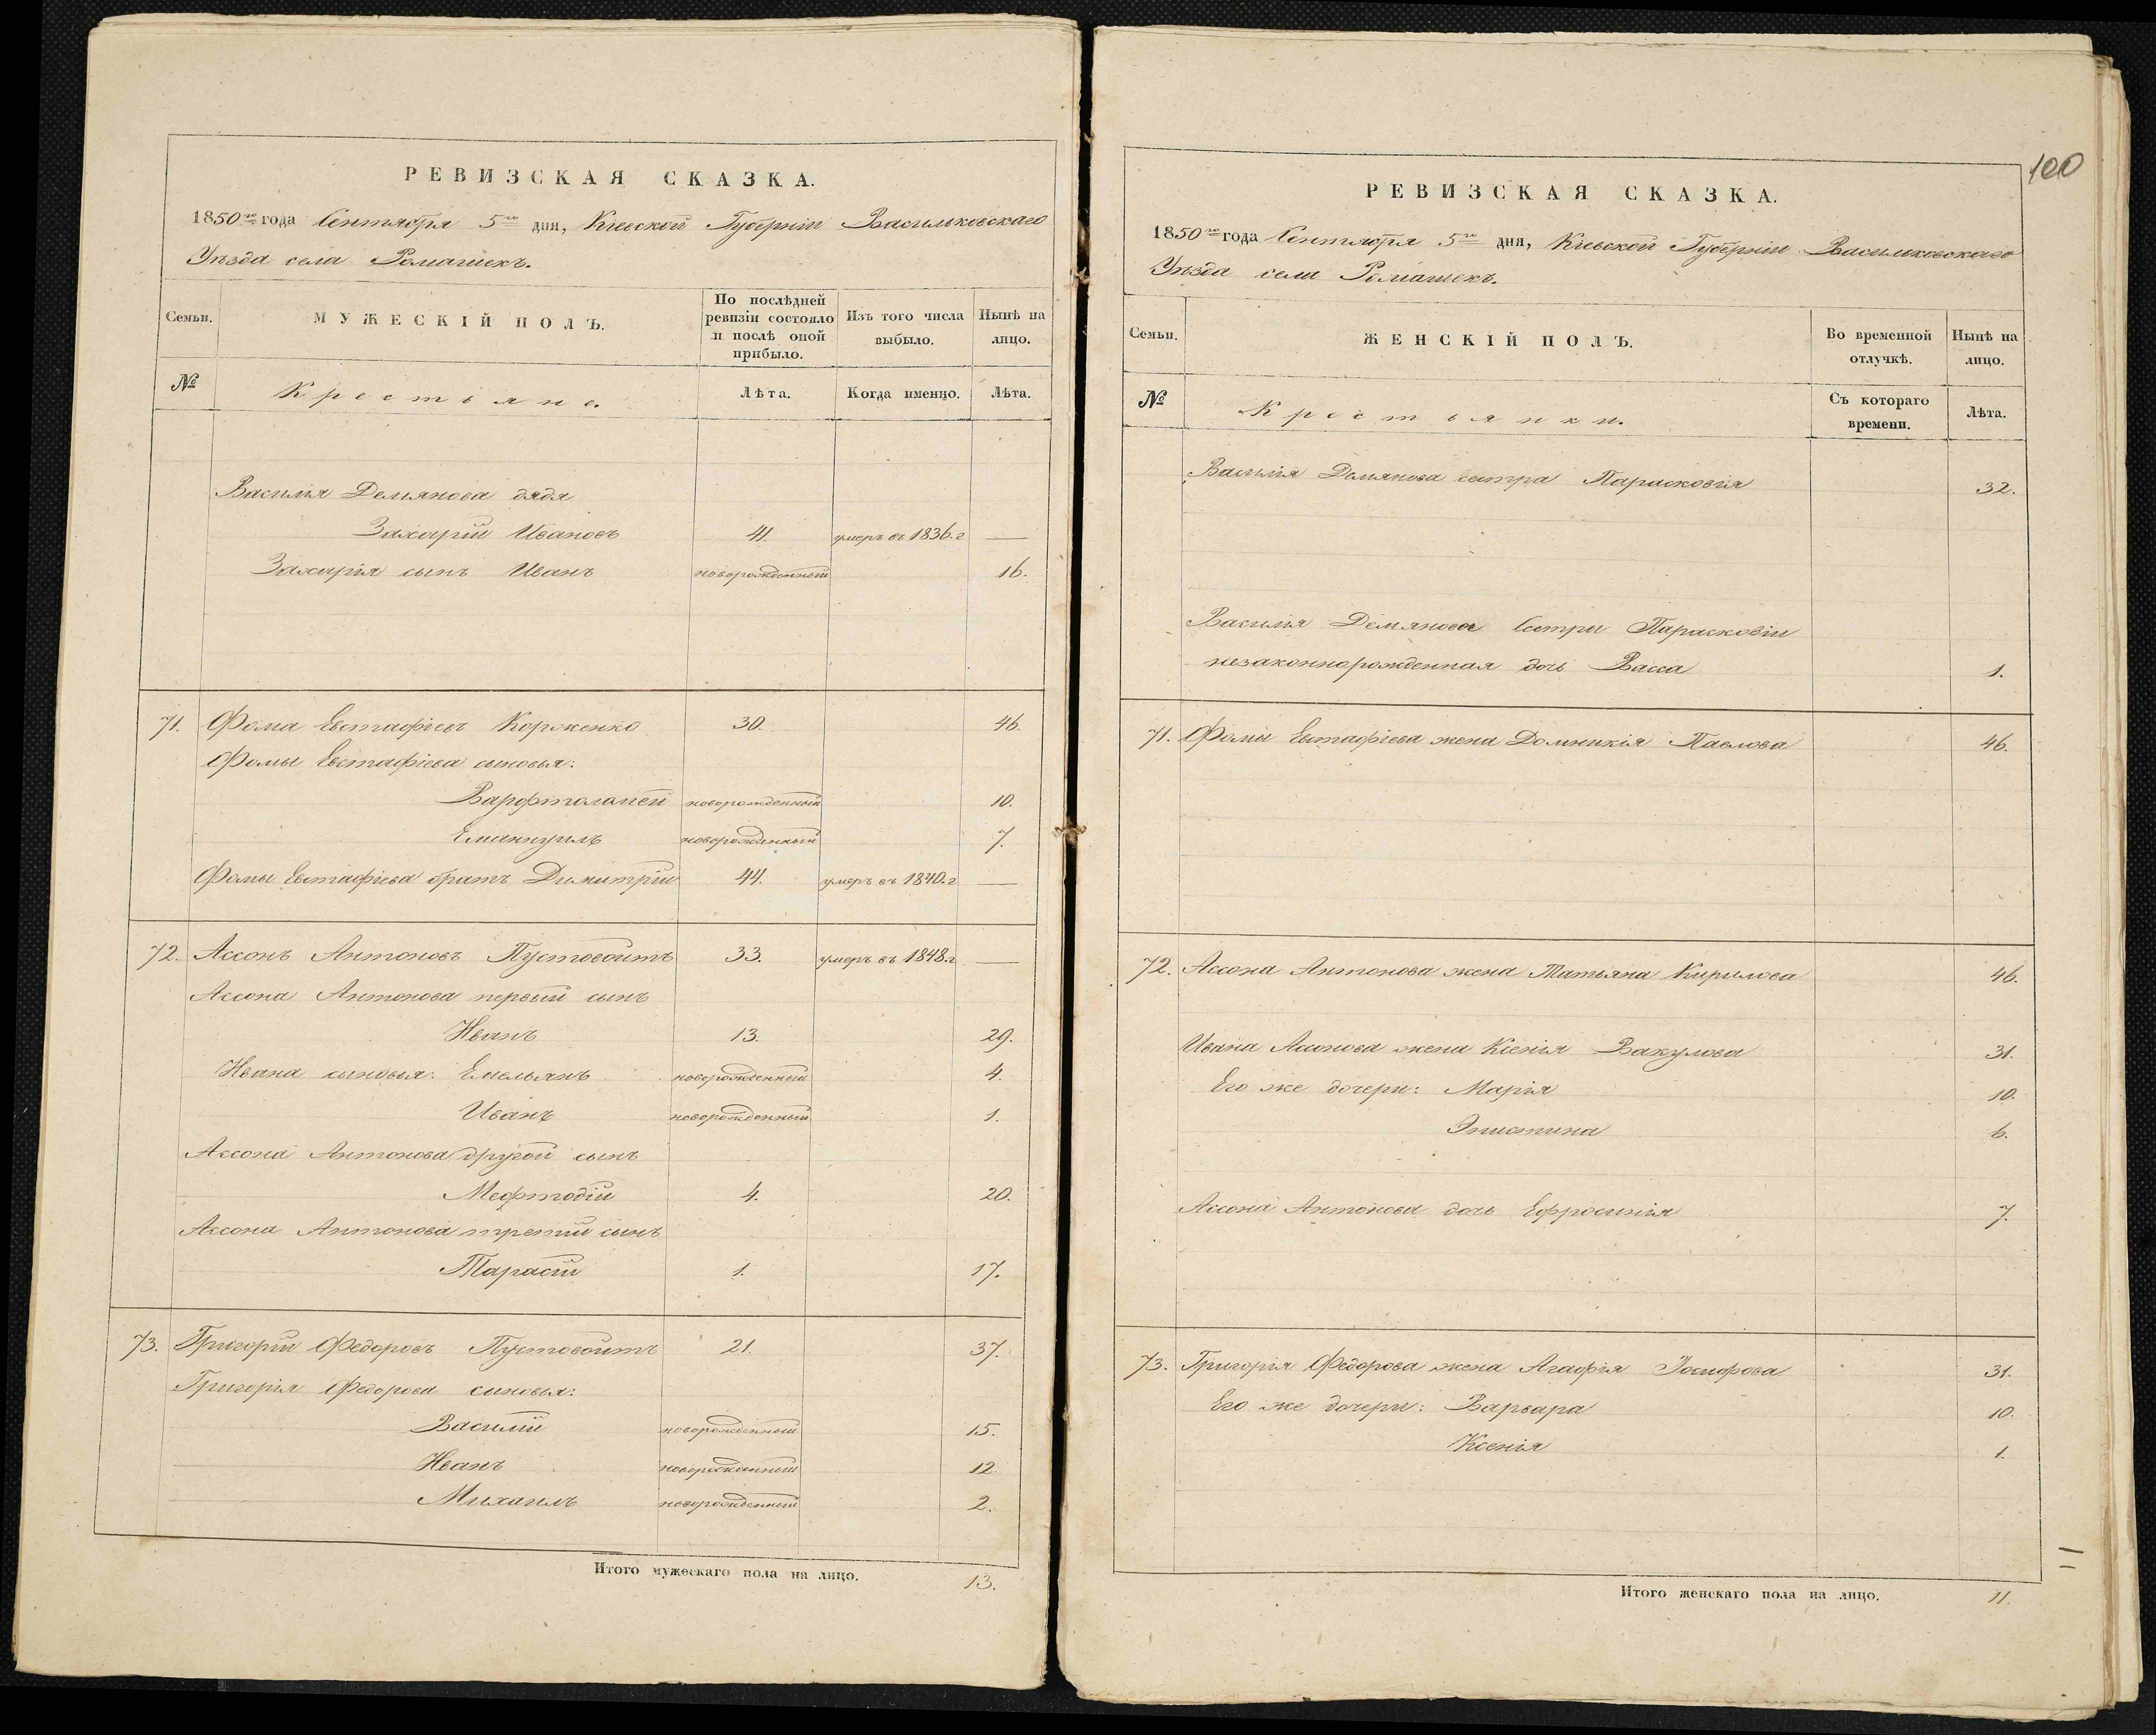 РЕВИЗСКАЯ СКАЗКА.
1850го года Сентября 5го дня, Кіевской Губерніи Васильковскаго
Уѣзда села Ромашекъ.
Семьи.
МУЖЕСКІЙ ПОЛЪ.
По послѣдней ревизіи состояло и послѣ оной прибыло.
Изъ того числа выбыло.
Нынѣ на лицо.
№
Крестьяне.
Лѣта.
Когда именно.
Лѣта.
Василія Демянова дядя
Захарій Ивановъ 41. умеръ въ 1836.г —
Захарія сынъ Иванъ новорожденный 16.
71. Фома Евстафіевъ Корженко 30. 46.
Фомы Евстафіева сыновья:
Варфтоломей новорожденный 10.
Емануилъ новорожденный 7.
Фомы Евстафіева братъ Димитрій 44. умеръ въ 1840.г —
72. Ассонъ Антоновъ Пустовойтъ 33. умеръ въ 1848.г —
Ассона Антонова первый сынъ
Иванъ 13. 29.
Ивана сыновья: Емельянъ новорожденный 4.
Иванъ новорожденный 1.
Ассона Антонова другой сынъ
Мефтодій 4. 20.
Ассона Антонова третий сынъ
Тарасій 1. 17.
73. Григорій Федоровъ Пустовойтъ 21. 37.
Григорія Федорова сыновья:
Василій новорожденный 15.
Иванъ новорожденный 12.
Михаилъ новорожденный 2.
Итого мужескаго пола на лицо. 13.
100
РЕВИЗСКАЯ СКАЗКА.
1850го года Сентября 5го дня, Кіевской Губерніи Васильковскаго
Уѣзда села Ромашекъ.
Семьи.
ЖЕНСКІЙ ПОЛЪ.
Во временной отлучкѣ.
Нынѣ на лицо.
№
Крестьянки.
Съ котораго времени.
Лѣта.
Василія Демянова сестра Парасковія 32.
Василія Демянова Сестри Парасковіи
незаконнорожденная дочь Васса 1.
71. Фомы Евстафіева жена Домникія Павлова 46.
72. Ассона Антонова жена Татьяна Кирилова 46.
Ивана Ассонова жена Ксенія Вакулова 31.
Его же дочери: Марія 10.
Эпистина 6.
Ассона Антонова дочь Ефросинія 7.
73. Григорія Федорова жена Агафія Іосифова 31.
Его же дочери: Варвара 10.
Ксенія 1.
Итого женскаго пола на лицо. 11.